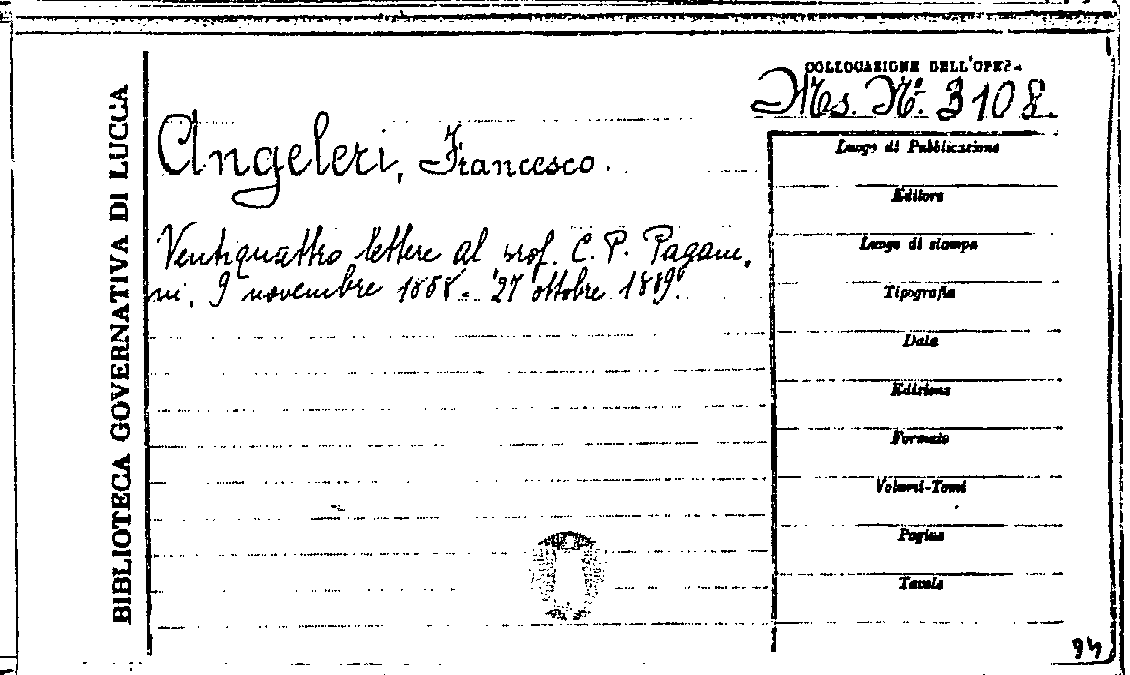 BIBLIOTECA GOVERNATIVA DI LUCCA
COLLOCAZIONE DELL'OPERA
Ms. N.º 3108.
Angeleri, Francesco.
Ventiquattro lettere al prof. C. P. Pagani,
ni. 9 novembre 1858. 27 ottobre 1889.
Luogo di Pubblicazione
Editore
Luogo di stampa
Tipografia
Data
Edizione
Formato
Volumi-Tomi
Pagine
Tavole
94